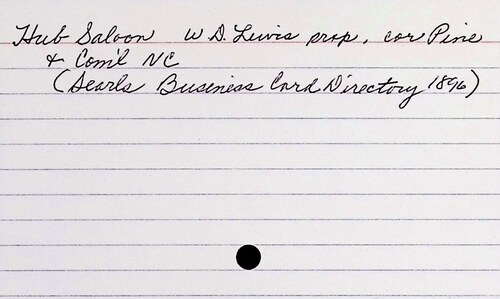 Hub Saloon W D. Lewis prop. cor Pine
& Com'l NC
(Searls Business Card Directory 1896)